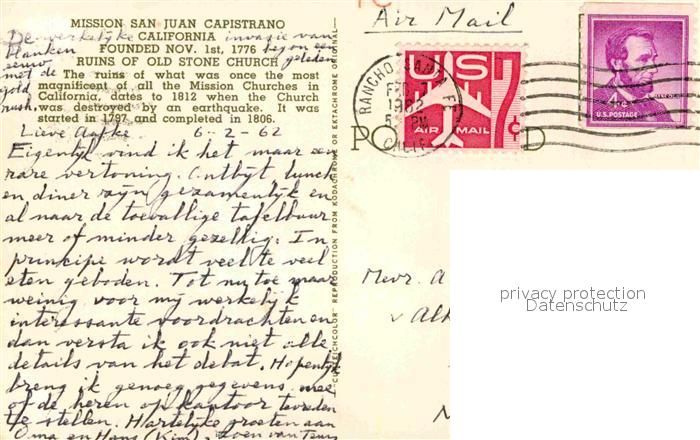 MISSION SAN JUAN CAPISTRANO
CALIFORNIA
FOUNDED NOV. 1st, 1776
RUINS OF OLD STONE CHURCH
The ruins of what was once the most
magnificent of all the Mission Churches in
California, dates to 1812 when the Church
was destroyed by an earthquake. It was
started in 1797 and completed in 1806.
De werkelijke invasie van
blanken begon een
eeuw geleden
met de
gold
rush.
Lieve Aafke 6-2-62
Eigenlijk vind ik het maar een
rare vertoning. Ontbijt, lunch
en diner zijn gezamenlijk en
al naar de toevallige tafelbuur
meer of minder gezellig. In
principe wordt veel te veel
eten geboden. Tot nu toe maar
weinig voor mij werkelijk
interessante voordrachten en
dan versta ik ook niet alle
details van het debat. Hopenlijk
breng ik genoeg gegevens mee
of de heren op kantoor tevreden
te stellen. Hartelijke groeten aan
Oma en Hans (Kim). Zoen van Teun
"COLTEICHCOLOR" REPRODUCTION FROM KODACHROME OR EKTACHROME ORIGINAL
Air Mail
RANCHO SANTA FE
FEB
1962
5 PM
CALIF
US
7¢
AIR MAIL
4¢
LINCOLN
U.S. POSTAGE
PO D
Mevr. A
v Alk
N
privacy protection
Datenschutz